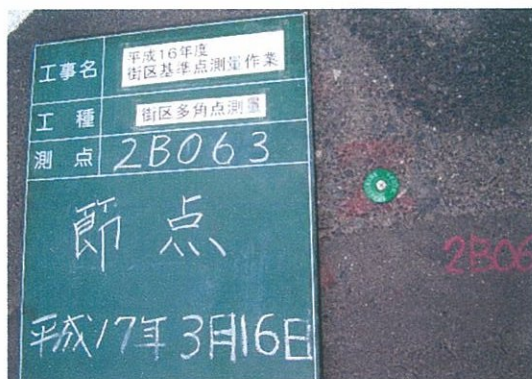 工事名
平成16年度
街区基準点測量作業
工種
街区多角点測量
測点
2B063
節点
平成17年3月16日
2B06